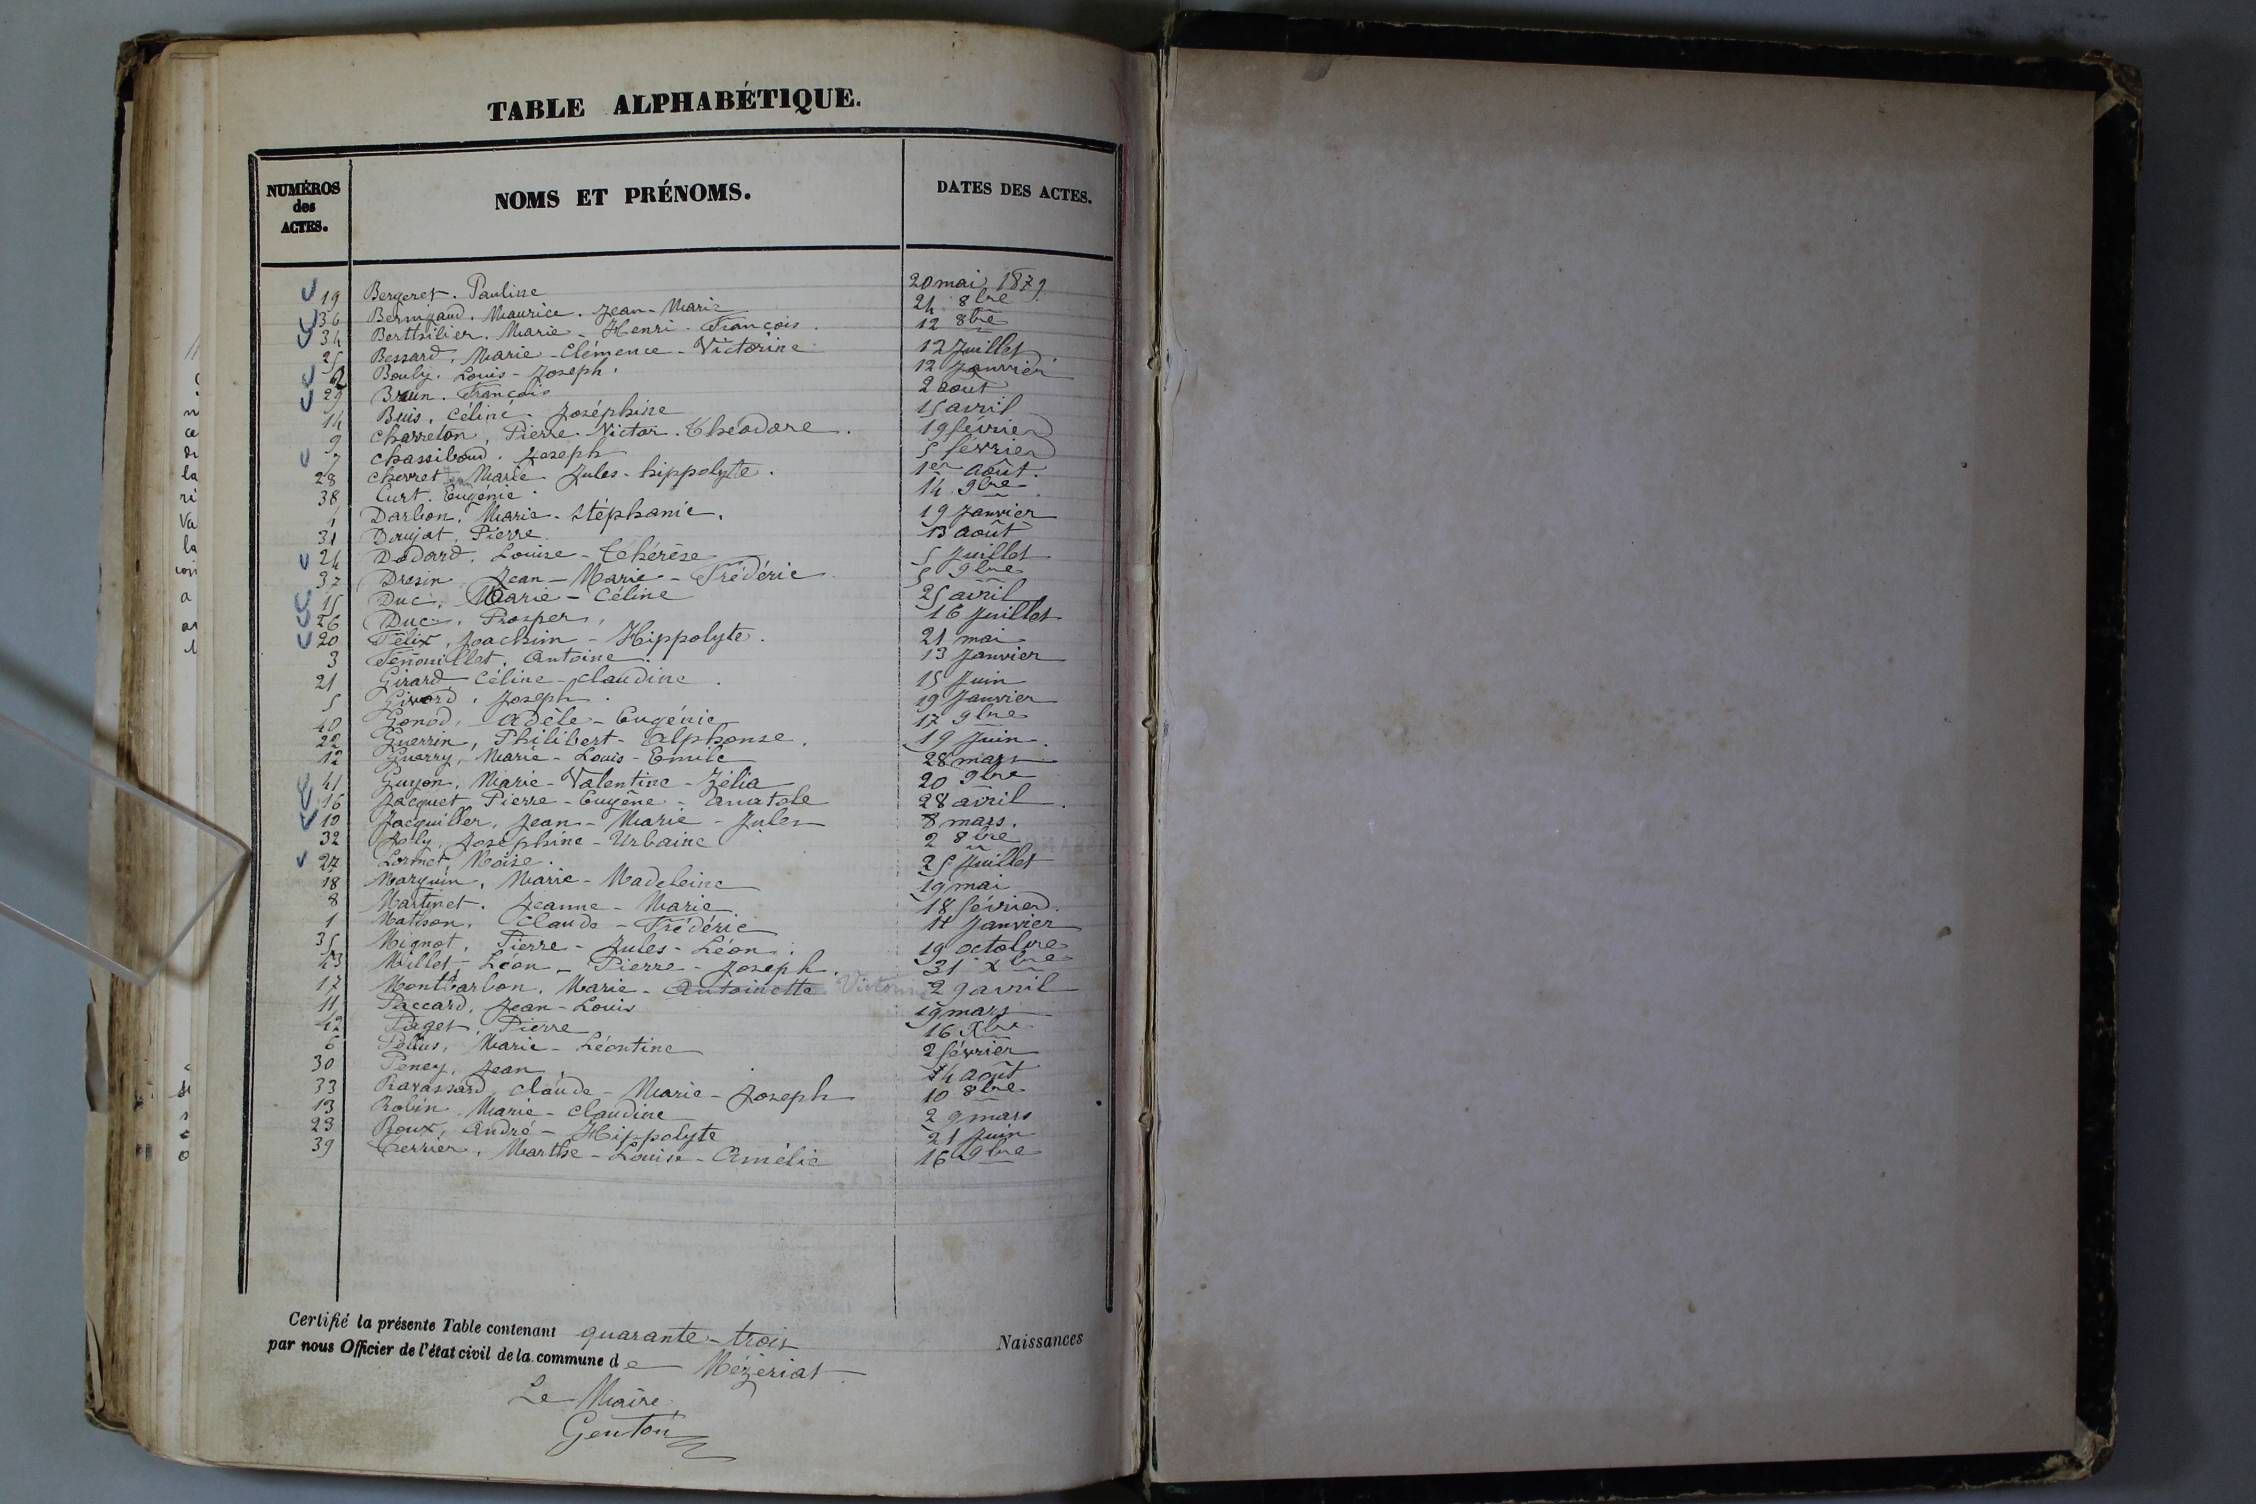 TABLE ALPHABÉTIQUE.
NUMÉROS des ACTES. NOMS ET PRÉNOMS. DATES DES ACTES.
19 Bergeret. Pauline 20 mai 1879
36 Bernigaud. Maurice. Jean-Marie 24 8bre
34 Berthilier. Marie-Henri-François. 12 8bre
25 Bessard, Marie-Clémence-Victorine 12 Juillet
2 Bouly. Louis-Joseph. 12 Janvier
29 Brun. François 2 août
14 Buis, Céline. Joséphine 15 avril
9 Charreton, Pierre-Victor-Theodore. 19 février
7 Chassiboud. Joseph 5 février
28 Chevret Marie Jules-hippolyte. 1er août.
38 Curt. Eugénie. 14 9bre
4 Darbon, Marie-Stéphanie. 19 Janvier
31 Doujat, Pierre. 13 août
24 Dodard, Louise-Thérèse 5 Juillet
37 Dresin Jean-Marie-Frédéric 5 9bre
15 Duc, Marie-Céline 25 avril
26 Duc, Prosper, 16 Juillet
20 Félix, Joachim-Hippolyte. 21 mai
3 Fenouillet, Antoine. 13 Janvier
21 Girard Céline-Claudine. 15 Juin
5 Givord, Joseph. 19 Janvier
40 Gonod, Adèle-Eugénie 17 9bre
22 Guerrin, Philibert-Alphonse. 19 Juin.
12 Guerry, Marie-Louis-Emile 28 mars
41 Guyon, Marie-Valentine-Zélia 20 9bre
16 Jacquet Pierre-Eugène-Anatole 28 avril.
10 Jacquiller, Jean-Marie-Jules 8 mars.
32 Joly, Joséphine-Urbaine 2 8bre
27 Lormet, Moïse. 25 Juillet
18 Marguin, Marie-Madeleine 19 mai
8 Martinet. Jeanne-Marie 18 février.
1 Mathon, Claude-Frédéric 11 Janvier
35 Mignot, Pierre-Jules-Léon. 19 octobre
43 Millet, Léon-Pierre-Joseph. 31 Xbre
17 Montbarbon, Marie-Antoinette Victorine 29 avril
11 Paccard, Jean-Louis 19 mars
42 Paget, Pierre 16 Xbre
6 Pellus, Marie-Léontine 2 février
30 Peney, Jean, 14 août
33 Ravassard, Claude-Marie-Joseph 10 8bre
13 Robin Marie-Claudine 29 mars
23 Roux, André-Hippolyte 21 Juin
39 Terrier, Marthe-Louise-Amélie 16 9bre
Certifié la présente Table contenant quarante-trois Naissances
par nous Officier de l'état civil de la commune de Mézériat
Le Maire
Genton